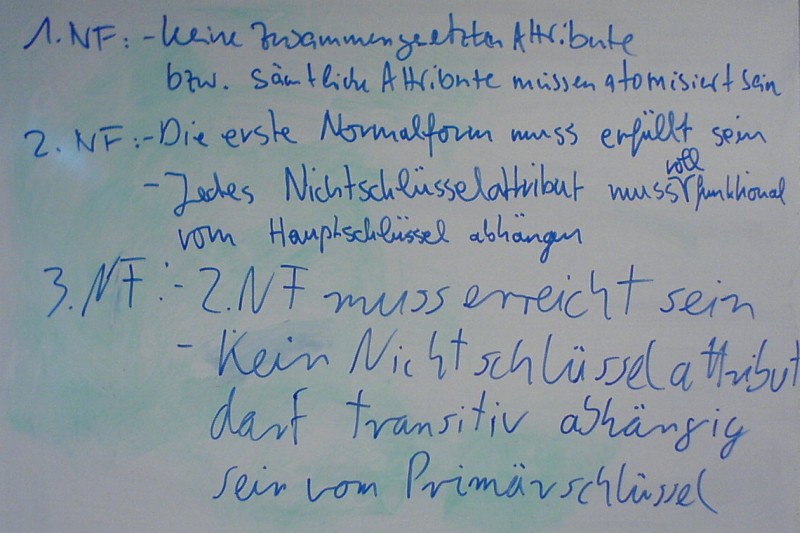 1. NF: - Keine zusammengesetzten Attribute
bzw. sämtliche Attribute müssen atomisiert sein
2. NF: - Die erste Normalform muss erfüllt sein
- Jedes Nichtschlüsselattribut muss voll funktional
vom Hauptschlüssel abhängen
3. NF: - 2. NF muss erreicht sein
- Kein Nichtschlüsselattribut
darf transitiv abhängig
sein vom Primärschlüssel